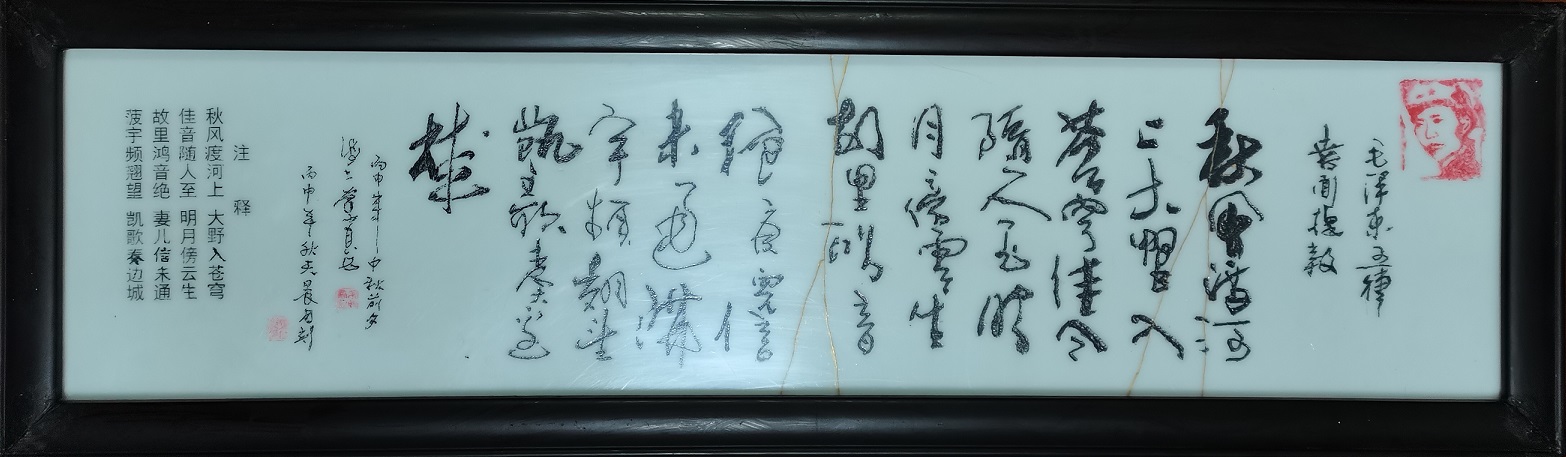 毛泽东五律
喜闻捷报
秋风渡河
上大野入
苍穹佳令
随人至明
月傍云生
故里鸿音
绝妻儿信
未通满
宇频翘望
凯歌奏边
城
丙申年中秋前夕
丙申年秋
注 释
秋风度河上 大野入苍穹
佳音随人至 明月傍云生
故里鸿音绝 妻儿信未通
菠宇频翘望 凯歌奏边城